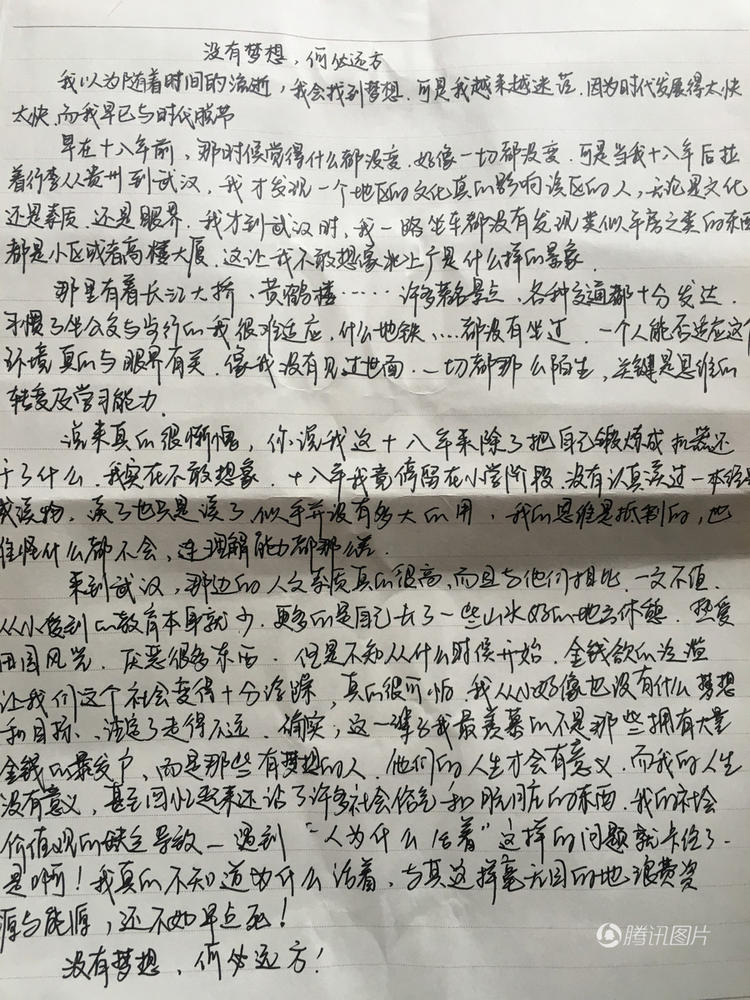 没有梦想，何必远方
我以为随着时间的流逝，我会找到梦想．可是我越来越迷茫．因为时代发展得太快
太快，而我早已与时代脱节
早在十八年前，那时候觉得什么都没变．好像一切都没变．可是当我十八年后拉
着行李从贵州到武汉，我才发现一个地区的文化真的影响该区的人，无论是文化
还是素质．还是眼界．我才到武汉时，我一路坐车都没有发现类似平房之类的东西
都是小区或者高楼大厦．这让我不敢想像北上广是什么样的景象．
那里有着长江大桥、黄鹤楼……许多著名景点、各种交通都十分发达．
习惯了坐公交与步行的我很难适应，什么地铁、…都没有坐过．一个人能否适应这个
环境真的与眼界有关．像我没有见过世面．一切都那么陌生，关键是思维的
转变及学习能力．
说来真的很惭愧，你说我这十八年来除了把自己锻炼成机器还
干了什么．我实在不敢想象．十八年我竟停留在小学阶段．没有认真读过一本经典
或读物，读了也只是读了，似乎并没有多大的用．我的思维是抵制的，也
难怪什么都不会，连理解能力都那么差．
来到武汉，那边的人文素质真的很高，而且与他们相比．一文不值．
从小受到的教育本身就少．更多的是自己去了一些山水好的地方休憩．热爱
田园风光．厌恶很多东西．但是不知从什么时候开始．金钱欲的泛滥
让我们这个社会变得十分浮躁，真的很可怕．我从小好像也没有什么梦想
和目标、注定了走得不远．确实，这一辈子我最羡慕的不是那些拥有大量
金钱的暴发户、而是那些有梦想的人．他们的人生才会有意义．而我的人生
没有意义，甚至回忆起来还沾了许多社会俗气和肮脏的东西．我的社会
价值观的缺乏导致一遇到"人为什么活着"这样的问题就卡住了．
是啊！我真的不知道为什么活着、与其这样毫无目的地浪费资
源与能源，还不如早点死！
没有梦想，何必远方！
腾讯图片